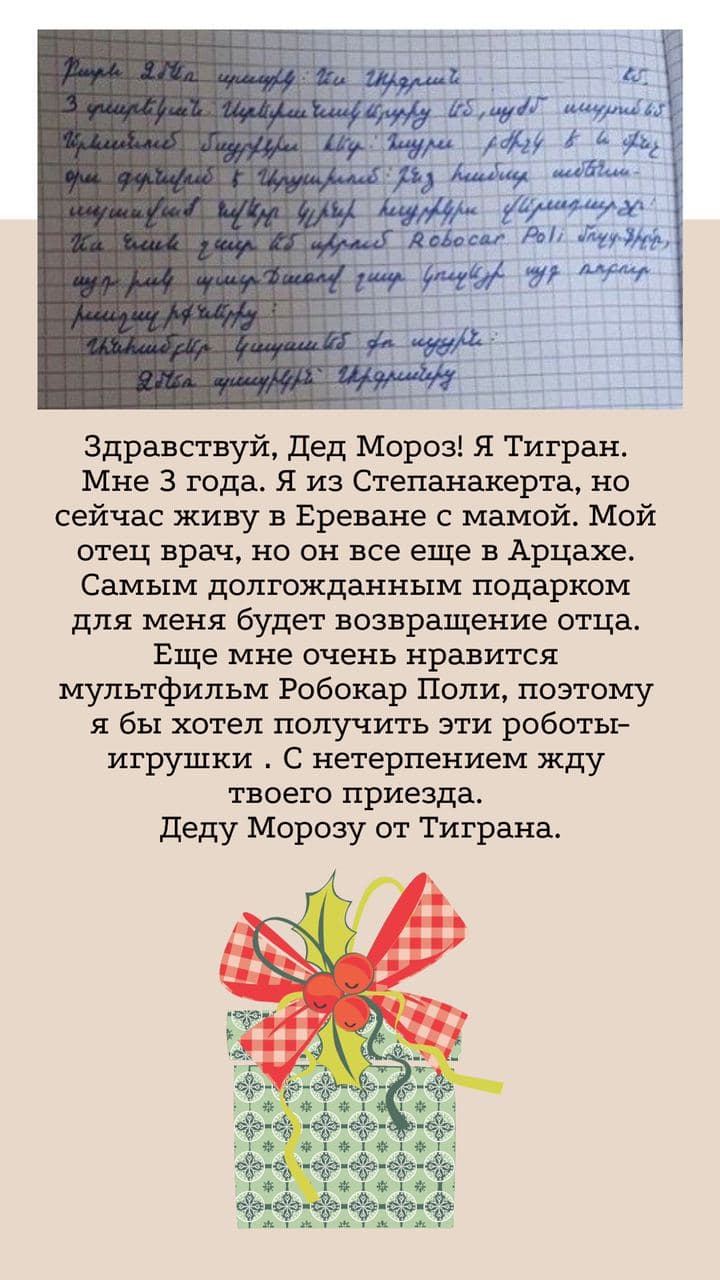 Բարև Ձմեռ պապիկ: Ես Տիգրանն եմ.
3 տարեկան Ստեփանակերտից եմ, այժմ ապրում եմ
Երևանում մայրիկիս հետ: Հայրս բժիշկ է և մինչ
օրս գտնվում է Արցախում: Ինձ համար ամենա-
սպասված նվերը կլինի հայրիկիս վերադարձը:
Ես նաև շատ եմ սիրում Robocar Poli մուլտֆիլմը,
այդ իսկ պատճառով շատ կուզեի այդ ռոբոտ
խաղալիքներից:
Անհամբեր կսպասեմ քո այցին:
Ձմեռ պապիկին Տիգրանից
Здравствуй, Дед Мороз! Я Тигран.
Мне 3 года. Я из Степанакерта, но
сейчас живу в Ереване с мамой. Мой
отец врач, но он все еще в Арцахе.
Самым долгожданным подарком
для меня будет возвращение отца.
Еще мне очень нравится
мультфильм Робокар Поли, поэтому
я бы хотел получить эти роботы-
игрушки . С нетерпением жду
твоего приезда.
Деду Морозу от Тиграна.